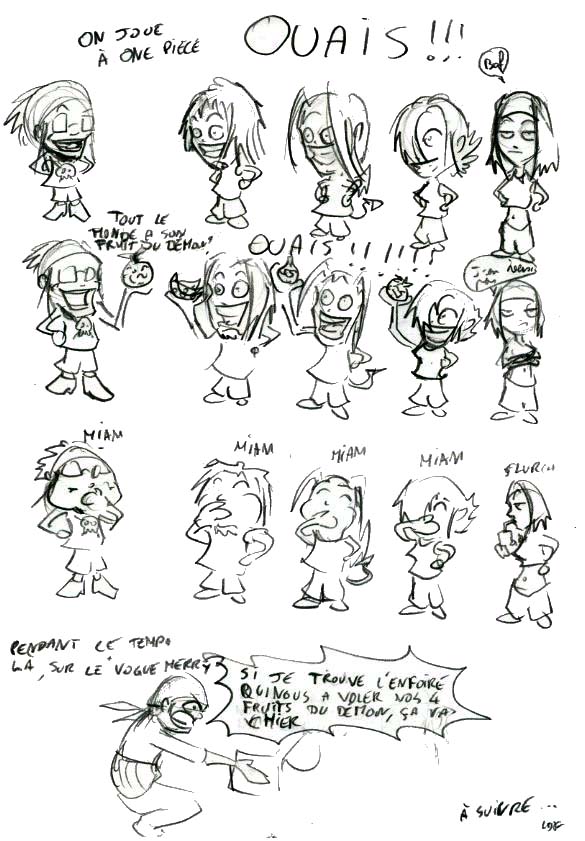 ON JOUE
À ONE PIECE
OUAIS !!!
Bof
TOUT LE
MONDE A SON
FRUIT DU DÉMON?
OUAIS !!!!!!!
MIAM
MIAM
MIAM
MIAM
PENDANT CE TEMPS
LA, SUR LE VOGUE MERRY
SI JE TROUVE L'ENFOIRÉ
QUI NOUS A VOLER NOS 4
FRUITS DU DÉMON, ÇA VA
CHIER
À SUIVRE...